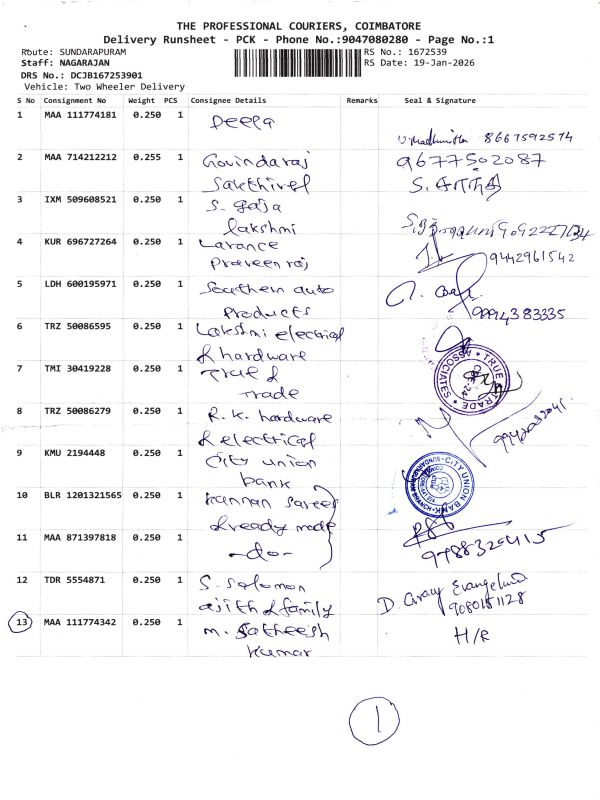 THE PROFESSIONAL COURIERS, COIMBATORE
Delivery Runsheet - PCK - Phone No.:9047080280 - Page No.:1
Route: SUNDARAPURAM
RS No.: 1672539
Staff: NAGARAJAN
RS Date: 19-Jan-2026
DRS No.: DCJB167253901
Vehicle: Two Wheeler Delivery
S No Consignment No Weight PCS Consignee Details Remarks Seal & Signature
1 MAA 111774181 0.250 1 Deepa
8667592574
2 MAA 714212212 0.255 1 Govindaraj 9677502087
Sakthivel S.
3 IXM 509608521 0.250 1 S. gaja
lakshmi
4 KUR 696727264 0.250 1 Larance
Praveen raj 9442961542
5 LDH 600195971 0.250 1 Southern auto
Products 9994383335
6 TRZ 50086595 0.250 1 Lakshmi electrical
& hardware
7 TMI 30419228 0.250 1 True &
Trade
TRUE TRADE ASSOCIATES
8 TRZ 50086279 0.250 1 R. K. hardware
& electrical
9 KMU 2194448 0.250 1 City union
bank
CITY UNION BANK
10 BLR 1201321565 0.250 1 Kannan Sarees
& ready made
11 MAA 871397818 0.250 1 -do-
12 TDR 5554871 0.250 1 S. Solomon
ajith & family
13 MAA 111774342 0.250 1 M. Satheesh H/R
Kumar
1